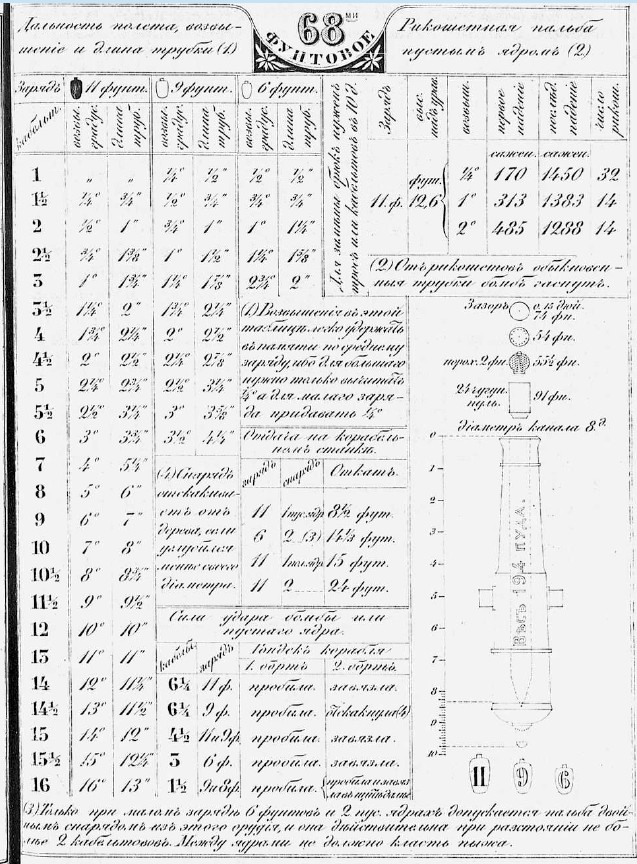 Дальность полета, возвы-
шеніе и длина трубки (1)
68ми
ФУНТОВОЕ
Рикошетная пальба
пустымъ ядромъ (2)
Зарядъ 11 фунт. 9 фунт. 6 фунт.
кабельт. возвы. градус. длина труб. возвы. градус. длина труб. возвы. градус. длина труб.
1 „ „ ¼° ½" ½° ½"
1½ ¼° ¾" ½° ¾" ¾° ¾"
2 ½° 1" ¾° 1" 1° 1¼"
2½ ¾° 1⅜" 1° 1½" 1¾° 1⅝"
3 1° 1¾" 1¼° 1⅞" 2¾° 2"
3½ 1¼° 2" 1¾° 2¼"
4 1¾° 2¼" 2° 2½"
4½ 2° 2½" 2¼° 2⅞"
5 2¼° 2¾" 2½° 3¼"
5½ 2½° 3¼" 3° 3⅝"
6 3° 3¾" 3½° 4¼"
7 4° 5¼"
8 5° 6"
9 6° 7"
10 7° 8"
10½ 8° 8¾"
11½ 9° 9½"
12 10° 10"
13 11° 11"
14 12° 11¼"
14½ 13° 11½"
15 14° 12"
15½ 15° 12¼"
16 16° 13"
Зарядъ возвыш. первое паденіе послед. паденіе число рикош.
сажен. сажен.
¼° 170 1450 32
11.ф. фут. 12,6 1° 313 1383 14
2° 485 1288 14
(2) Отъ рикошетовъ обыкновен-
ныя трубки бомбъ гаснутъ.
(1) Возвышенія въ этой
таблицѣ легко удержать
въ памяти по среднему
заряду, ибо для большаго
нужно только вычитать
¼° а для малаго заря-
да придавать ¼°
Отдача на корабель-
номъ станкѣ.
зарядъ снарядъ Откатъ.
11 1 пус. ядр 8½ фут.
6 2 (3) 14½ фут.
11 15 фут.
11 2 24 фут.
(4) Снарядъ
отскакива-
етъ отъ
дерева, если
углубился
менѣе своего
діаметра.
Сила удара бомбы или
пустаго ядра.
кабельт. зарядъ Гондекъ корабля
1. бортъ 2. бортъ
6¼ 11 ф. пробила. завязла.
6¼ 9 ф. пробила. отскакнула (4)
4½ 11 и 9 ф. пробила. завязла.
3 6 ф. пробила. завязла.
1½ 9 и 8 ф. пробила.
Зазоръ 0.15 дюй.
74 фн.
54 фн.
порох. 2 фн. 55½ фн.
24 чугун.
пуль. 91 фн.
діаметръ канала 8.д.
0
1
2
3
4
5
6
7
8
9
10
ВѢСЪ 194 ПУДА.
11 9 6
(3) Только при маломъ зарядѣ 6 фунтовъ и 2 пус. ядрахъ допускается пальба двой-
нымъ снарядомъ изъ этого орудія, и она дѣйствительна при разстояніи не бо-
лѣе 2 кабельтововъ. Между ядрами не должно класть пыжа